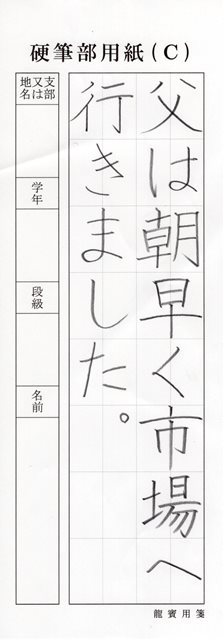 硬筆部用紙(C)
父は朝早く市場へ
行きました。
支部
又は
地名
学年
段級
名前
龍賓用箋